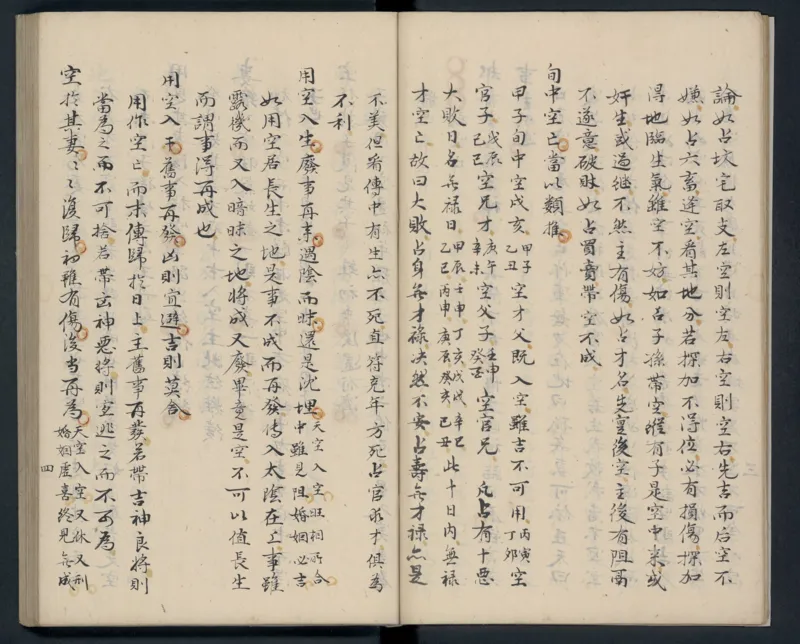 論如占坟宅取支左空則空左右空則空右先吉而后空不
嫌如占六畜逢空看其地分若探加不得位必有損傷探加
得地臨生氣雖空不妨如占子孫帶空縱有子是空中来或
奸生或過継不然主有傷如占才名先實後空主後有阻鬲
不遂竟破財如占買賣帶空不成
旬中空亡當以類推
甲子旬中空戌亥甲子乙丑空才父既入空雖吉不可用丙寅丁卯空
官子戊辰己巳空兄才庚午辛未空父子壬申癸酉空官兄 凡占有十惡
大敗日名無禄日甲辰乙巳壬申丙申丁亥庚辰戊戌癸亥辛巳己丑此十日内無禄
才空亡故曰大敗占身無才禄决然不安占壽無才禄亦是
不美但看傳中有生亦不死直符克年方死占官求才俱為
不利
用空入生廢事再来遇陰而昧還是沈埋天空入空旺相所合中雖見阻婚姻必吉
如用空居長生之地是事不成而再發傳入太陰在工事雖
露機而又入暗昧之地将成又廢畢竟是空不可以值長生
而謂事得再成也
用空入干舊事再發凶則宜避吉則莫合
用作空亡而末傳歸於日上主舊事再發若帶吉神良將則
當為之而不可捨若帶玄神惡將則宜逃之而不可為
空於其妻〻復歸初雖有傷後当再為天空入空又休又刑婚姻虚喜終見無成
四
三